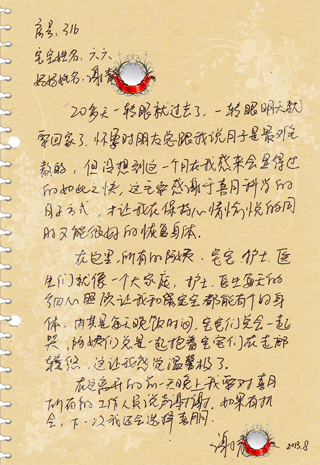 房号：316
宝宝姓名：六六
妈妈姓名：谢
20多天一转眼就过去了，一转眼明天就
要回家了。怀孕时朋友总跟我说月子是最难
熬的，但没想到这一个月在我感来会显得过
的如此之快。这还要感谢于喜月科学的
月子方式，才让我在保持心情愉悦的同
时又能很好的恢复身体。
在这里，所有的阿姨、宝宝、护士、医
生们就像一个大家庭，护士、医生每天的
细心照顾让我和宝宝都能有个好身
体，尤其是每天晚饭时间，宝宝们总会一起
哭，阿姨们总是一起抱着宝宝们在走廊
转悠，这让我感觉温馨极了。
在这离开的前一天晚上我要对喜月
所有的工作人员说声谢谢。如果有机
会，下一次我还会选择喜月。
谢
2013.8